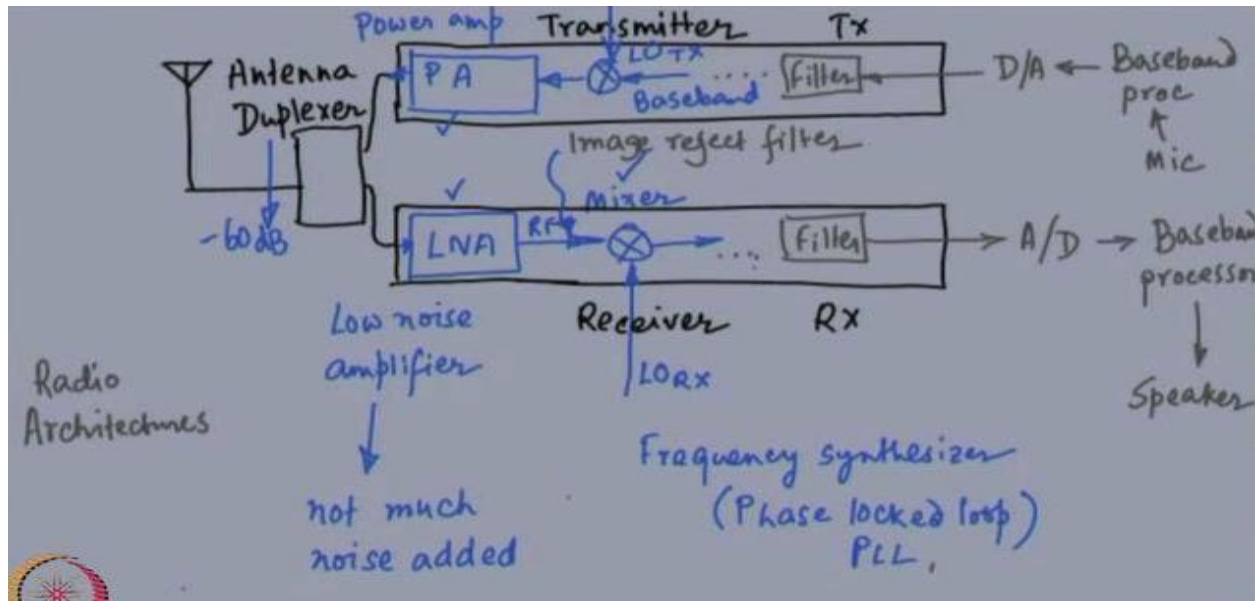 Power amp
Transmitter
Tx
Antenna
Duplexer
PA
LOTX
Baseband
....
Filter
D/A
Baseband
proc
Mic
Image reject filter
Mixer
-60dB
LNA
RF
....
Filter
A/D
Baseband
processor
Speaker
Receiver
Rx
LORX
Low noise
amplifier
not much
noise added
Radio
Architectures
Frequency synthesizer
(Phase locked loop)
PLL,